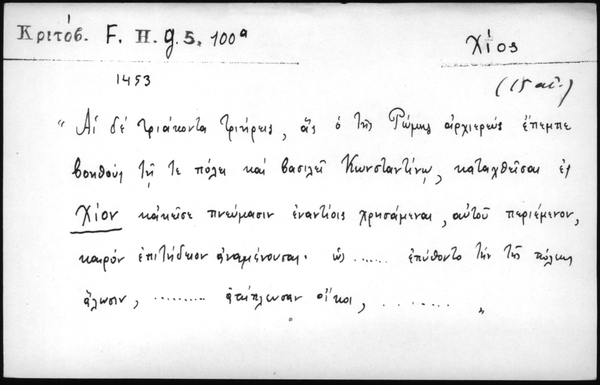 Κριτόβ. F. H. g. 5. 100ᵃ
Χίος
1453
(15 αἰ.)
"Αἱ δέ τριάκοντα τριήρεις, ἅς ὁ τῆς Ῥώμης ἀρχιερεύς ἔπεμπε
βοηθούς τῇ τε πόλει καί βασιλεῖ Κωνσταντίνῳ, καταχθεῖσαι ἐς
Χίον κἀκεῖσε πνεύμασιν ἐναντίοις χρησάμεναι, αὐτοῦ περιέμενον,
καιρόν ἐπιτήδειον ἀναμένουσαι· ὡς ...... ἐπύθοντο τήν τῆς πόλεως
ἅλωσιν, ......... ἀπέπλευσαν οἴκοι, ........ "